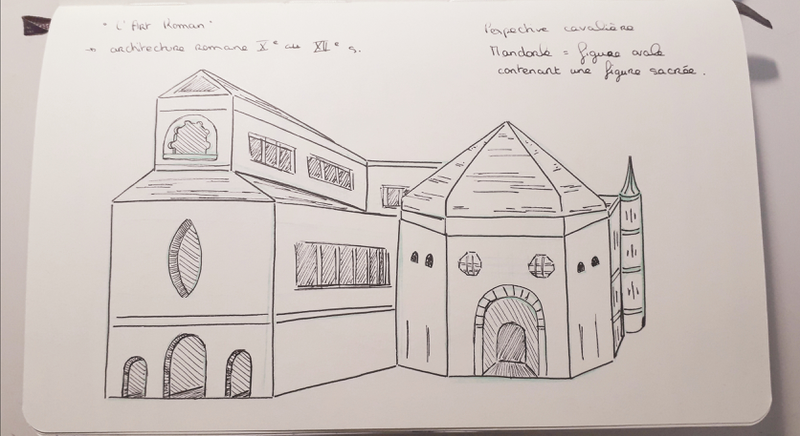 "L'Art Roman"
→ architecture romane Xe au XIIe s.
Perspective cavalière
Mandorle = figure ovale
contenant une figure sacrée.